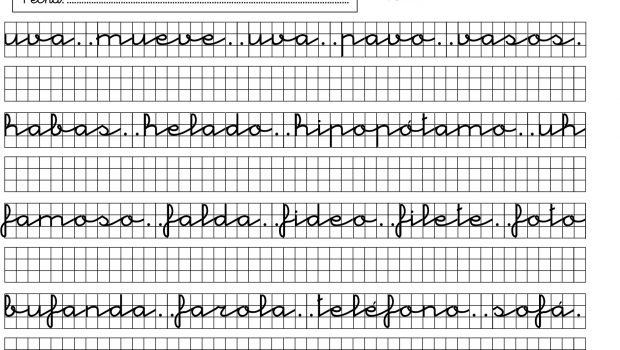 Fecha:
uva..mueve..uva..pavo..vasos.
habas..helado..hipopótamo..uh
famoso..falda..fideo..filete..foto
bufanda..farola..teléfono..sofá.